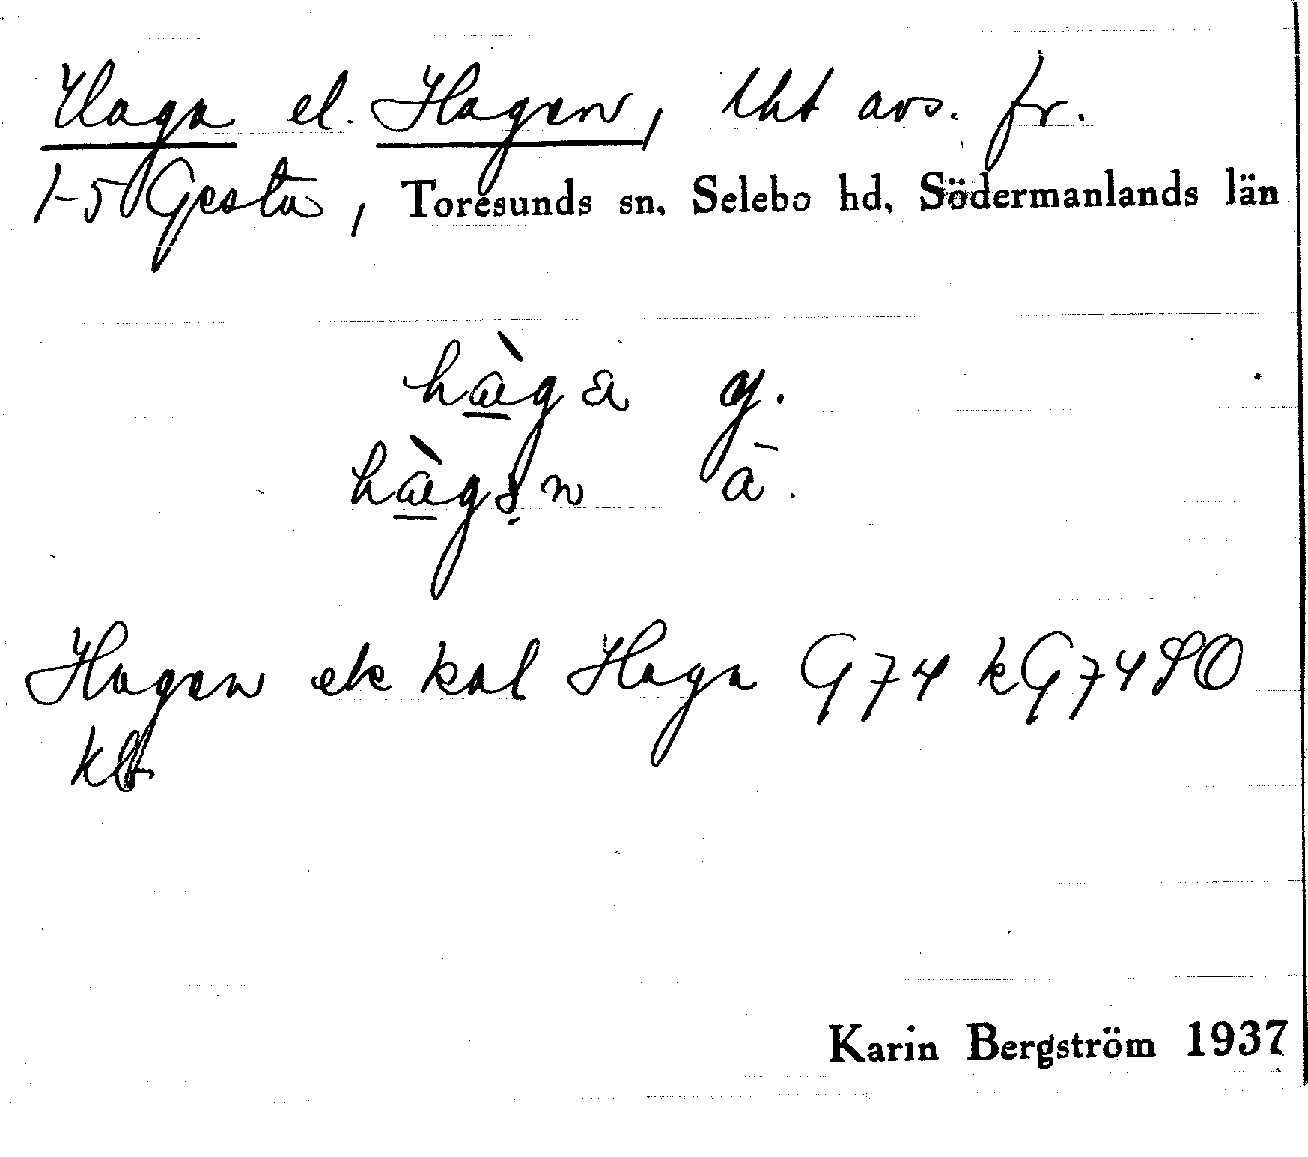 Haga el. Hagen, lht avs. fr.
1-5 Gesta, Toresunds sn, Selebo hd, Södermanlands län
hàga y.
hàgən ä.
Hagen ek kal Haga G74 kG74 SO
kb
Karin Bergström 1937